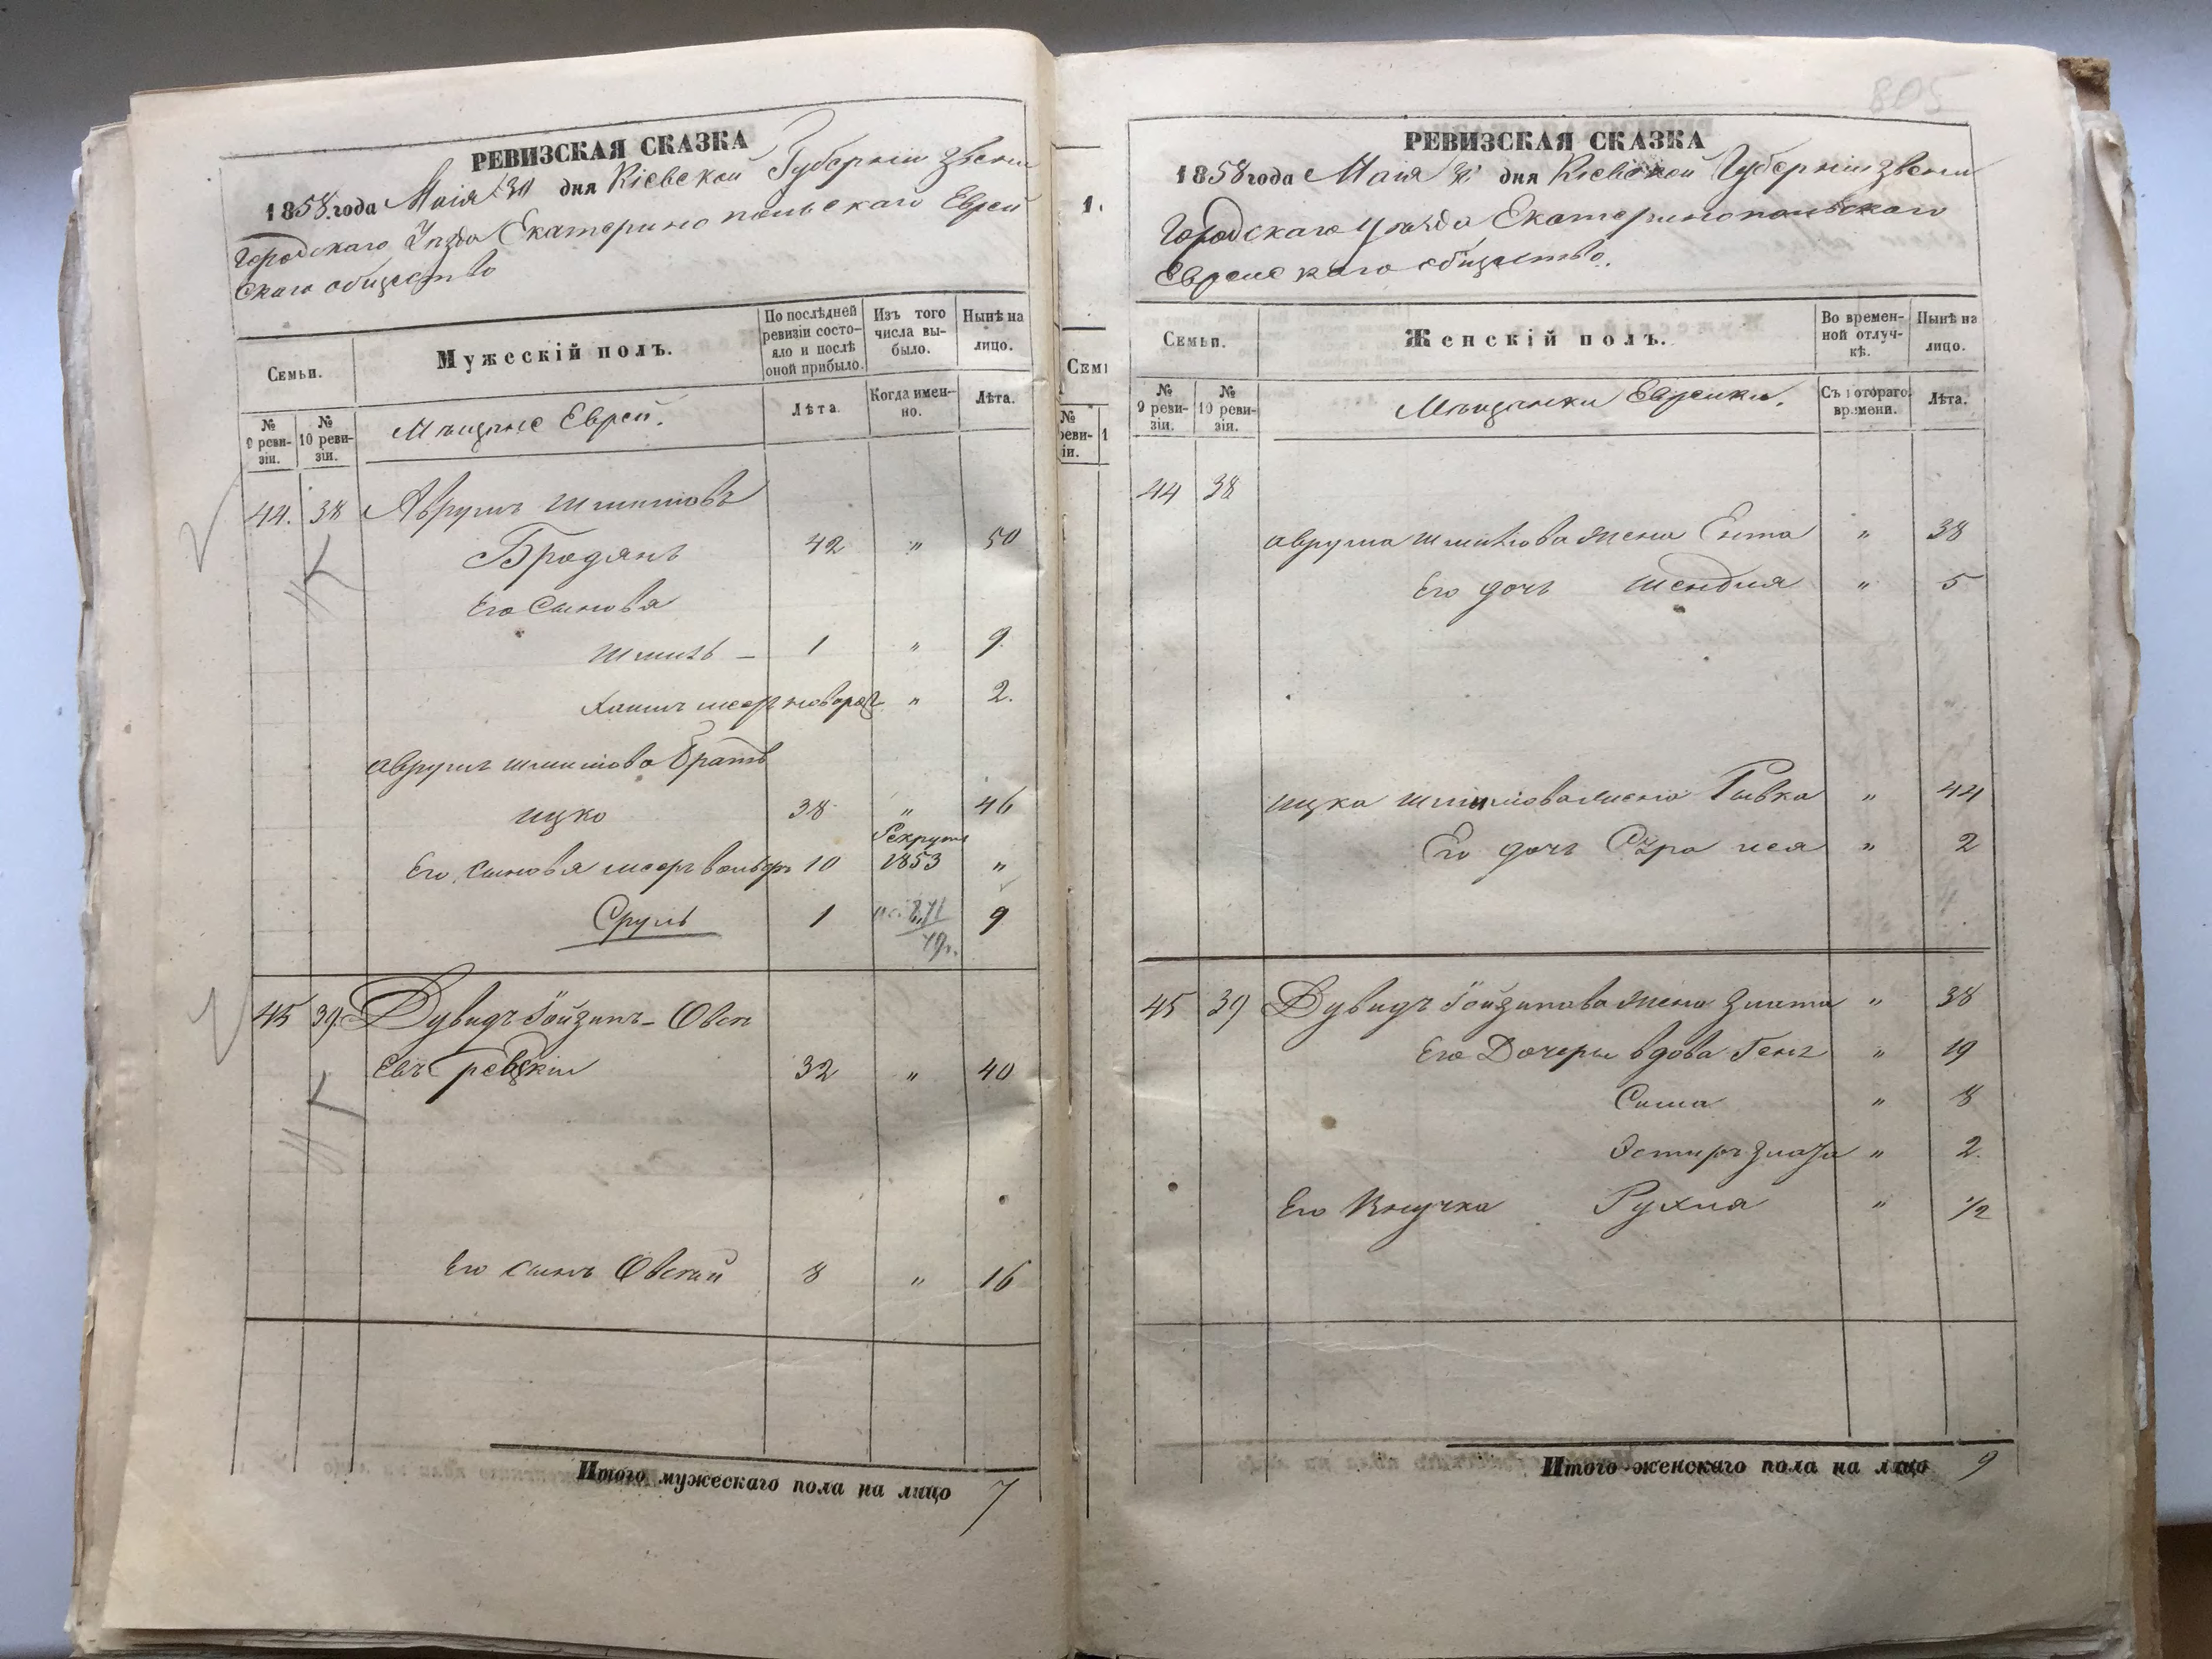 РЕВИЗСКАЯ СКАЗКА
1858 года Маія 30 дня Кіевской Губерніи Звени
городскаго Уѣзда Екатеринопольскаго Еврей
скаго общество
Семьи.
Мужескій полъ.
По послѣдней ревизіи состояло и послѣ оной прибыло.
Изъ того числа выбыло.
Нынѣ на лицо.
№ 9 ревизіи.
№ 10 ревизіи.
Мѣщане Еврей.
Лѣта.
Когда именно.
Лѣта.
44. 38 Аврумъ Шмилювъ
Бродянъ 42 „ 50
Его Сыновя
Шмиль – 1 „ 9
Хаимъ меер новорож „ 2.
Аврума шмилюва братъ
ицко 38 „ 46
Его сыновя меер вольфъ 10 Рекрутъ 1853 „
Сруль 1 9
45 39 Дувидъ Іойзипъ – Овсе
евъ Гревскій 32 „ 40
Его сынъ Овсий 8 „ 16
Итого мужескаго пола на лицо 7
805
РЕВИЗСКАЯ СКАЗКА
1858 года Маія 30 дня Кіевской Губерніи Звени
городскаго Уѣзда Екатеринопольскаго
Еврейскаго общество.
Семьи.
Женскій полъ.
Во временной отлучкѣ.
Нынѣ на лицо.
№ 9 ревизіи.
№ 10 ревизіи.
Мѣщанки Еврейки.
Съ котораго времени.
Лѣта.
44 38
Аврума шмилюва жена Ента „ 38
Его дочь Шендля „ 5
ицка шмилюва жена Рывка „ 44
Его дочь Сура лея „ 2
45 39 Дувидъ Іойзипова жена Злата „ 38
Его Дочеры вдова Геня „ 19
Сима „ 8
Эстиръ злата „ 2.
Его Внучка Рухля „ 1/2
Итого женскаго пола на лицо 9